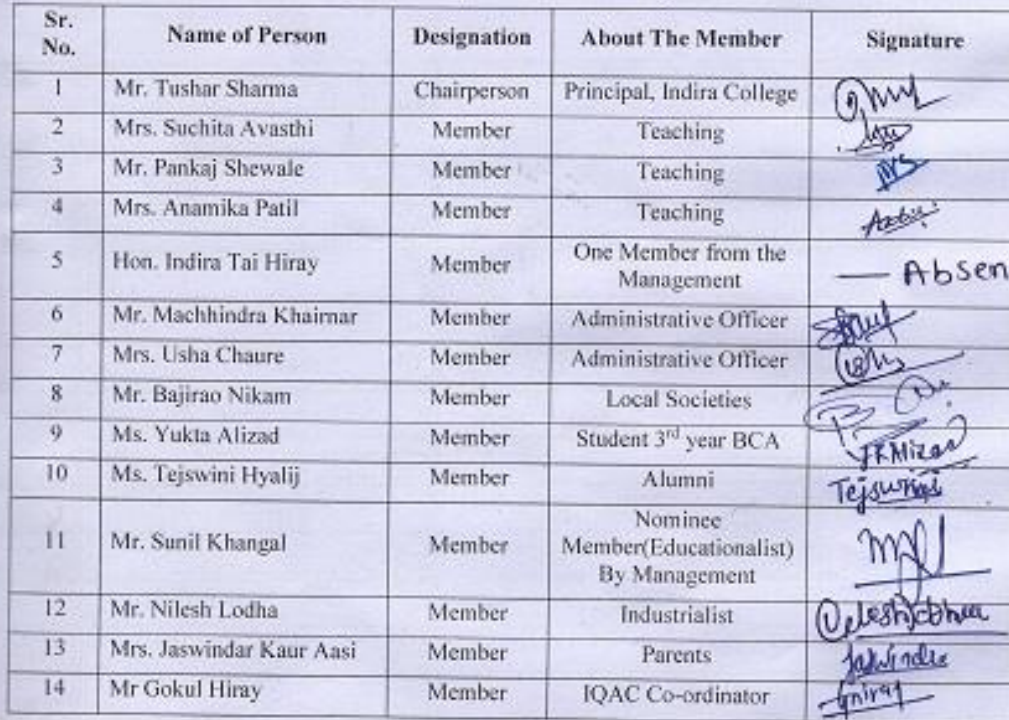 Sr. No. Name of Person Designation About The Member Signature
1 Mr. Tushar Sharma Chairperson Principal, Indira College
2 Mrs. Suchita Avasthi Member Teaching
3 Mr. Pankaj Shewale Member Teaching
4 Mrs. Anamika Patil Member Teaching
5 Hon. Indira Tai Hiray Member One Member from the Management — Absen
6 Mr. Machhindra Khairnar Member Administrative Officer
7 Mrs. Usha Chaure Member Administrative Officer
8 Mr. Bajirao Nikam Member Local Societies
9 Ms. Yukta Alizad Member Student 3rd year BCA
10 Ms. Tejswini Hyalij Member Alumni Tejswini
11 Mr. Sunil Khangal Member Nominee Member(Educationalist) By Management
12 Mr. Nilesh Lodha Member Industrialist
13 Mrs. Jaswindar Kaur Aasi Member Parents
14 Mr Gokul Hiray Member IQAC Co-ordinator